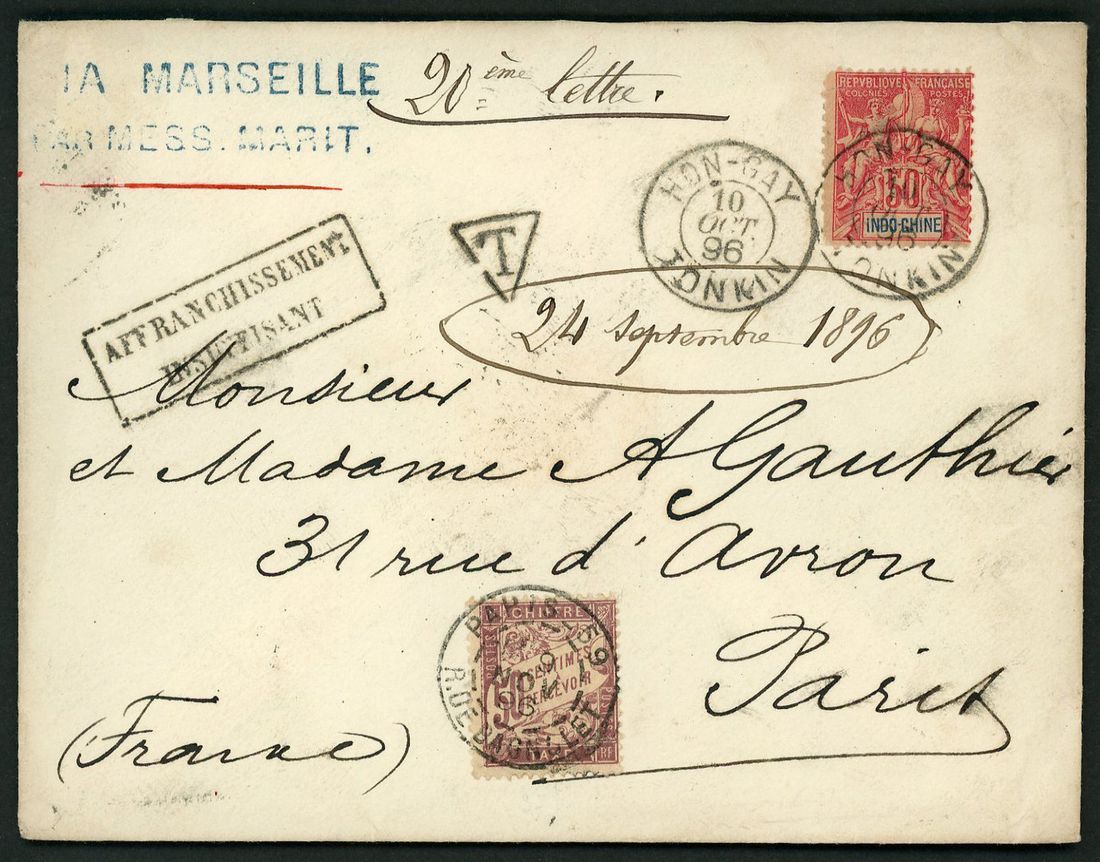 IA MARSEILLE
PAR MESS. MARIT.
20ème lettre.
REPVBLIQVE FRANÇAISE
COLONIES POSTES
50
INDO-CHINE
HON-GAY
10
OCT
96
TONKIN
HON-GAY
96
TONKIN
T
AFFRANCHISSEMENT
INSUFFISANT
24 septembre 1896
Monsieur
et Madame A Gauthier
31 rue d'Avron
Paris
(France)
CHIFFRE
POSTES
50 CENTIMES
PERCEVOIR
RF
PARIS-59
9
NOV
96
R. DE BAGNOLET